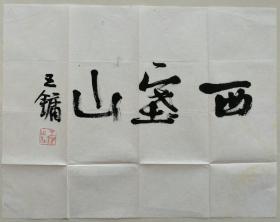 西塞山
王鏞